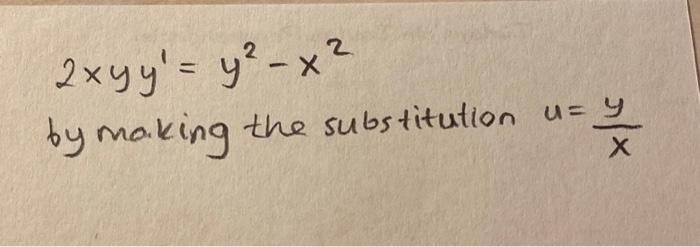 2xyy' = y² - x²
by making the substitution u = y/x